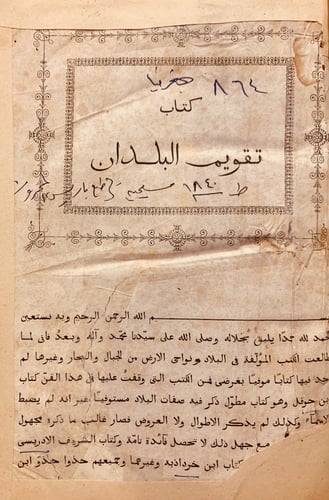 جغرافيا ٨٦٤
كتاب
تقويم البلدان
ط ١٨٤٠
ـم الله الرحمن الرحيم وبه نستعين
حمد لله حمدا يليق بجلاله وصلى الله على سيدنا محمد وآله وبعد فاني لما
طالعت الكتب المؤلفة في البلاد ونواحي الارض من الجبال والبحار وغيرها لم
جد فيها كتابا موفيا بغرضي فمن الكتب التي وقفت عليها في هذا الفن كتاب
بن حوقل وهو كتاب مطول ذكر فيه صفات البلاد مستوفيا غير انه لم يضبط
الاسماء وكذلك لم يذكر الاطوال ولا العروض فصار غالب ما ذكره مجهول
مع جهل ذلك لا تحصل فائدة تامة وكتاب الشريف الادريسي
كتاب ابن خرداذبه وغيرها وجميعهم حذوا حذو ابن